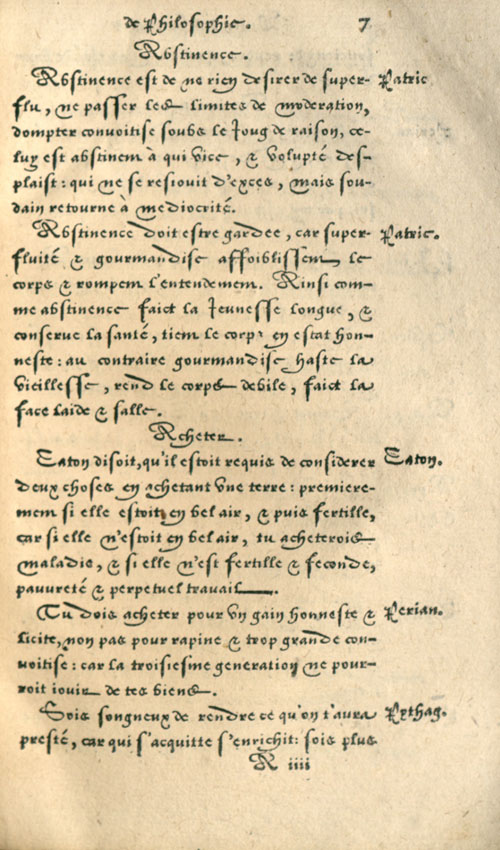 de Philosophie. 7
Abstinence.
Abstinence est de ne rien desirer de super- Patric
flu, ne passer les limites de moderation,
dompter convoitise soubs le Joug de raison, ce-
luy est abstinent à qui vice, & volupté des-
plaist: qui ne se resiouit d'exces, mais sou-
dain retourne à mediocrité.
Abstinence doit estre gardée, car super- Patric.
fluité & gourmandise affoiblissent le
corps & rompent l'entendement. Ainsi com-
me abstinence faict la Jeunesse longue, &
conserve la santé, tient le corps en estat hon-
neste: au contraire gourmandise haste la
vieillesse, rend le corps debile, faict la
face laide & salle.
Acheter.
Caton disoit, qu'il estoit requis de considerer Caton.
deux choses en achetant une terre: premiere-
ment si elle estoit en bel air, & puis fertille,
car si elle n'estoit en bel air, tu acheterois
maladie, & si elle n'est fertille & feconde,
pauvreté & perpetuel travail.
Tu dois acheter pour un gain honneste & Perian.
licite, non pas pour rapine & trop grande con-
voitise: car la troisiesme generation ne pour-
roit iouir de tes biens.
Sois songneux de rendre ce qu'on t'aura Pythag.
presté, car qui s'acquitte s'enrichit: sois plus
A iiii